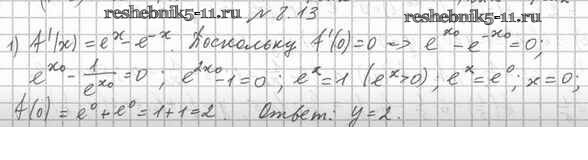 reshebnik5-11.ru № 8.13 www.reshebnik5-11.ru
1) f'(x) = eˣ - e⁻ˣ. Поскольку f'(0) = 0 => e^{x₀} - e^{-x₀} = 0;
e^{x₀} - 1/e^{x₀} = 0; e^{2x₀} - 1 = 0; eˣ = 1 (eˣ > 0); eˣ = e⁰; x = 0;
f(0) = e⁰ + e⁰ = 1 + 1 = 2. Ответ: y = 2.